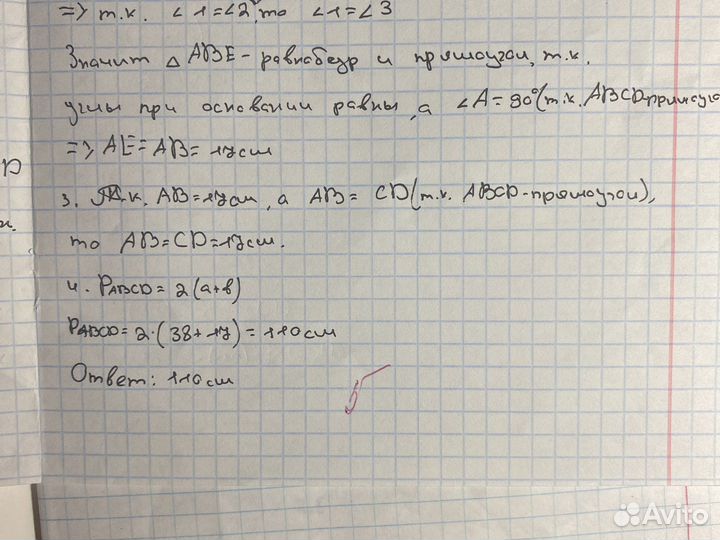 => т.к. ∠1=∠2, то ∠1=∠3
Значит △ABE - равнобедр и прямоугол, т.к.
углы при основании равны, а ∠A=90°(т.к. ABCD-прямоуго
=> AE=AB=17см
3. Т.к. AB=17см, а AB=CD(т.к. ABCD-прямоугол),
то AB=CD=17см.
4. PABCD=2(a+b)
PABCD=2·(38+17)=110см
Ответ: 110см
5
Avito